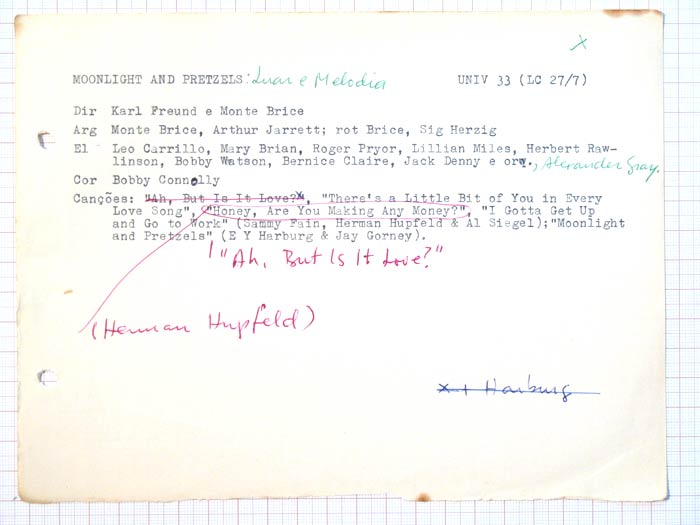 x
MOONLIGHT AND PRETZELS: Luar e Melodia UNIV 33 (LC 27/7)
Dir Karl Freund e Monte Brice
Arg Monte Brice, Arthur Jarrett; rot Brice, Sig Herzig
El Leo Carrillo, Mary Brian, Roger Pryor, Lillian Miles, Herbert Raw-
linson, Bobby Watson, Bernice Claire, Jack Denny e orq., Alexander Gray.
Cor Bobby Connolly
Canções: "Ah, But Is It Love?", "There's a Little Bit of You in Every
Love Song", "Honey, Are You Making Any Money?", "I Gotta Get Up
and Go to Work" (Sammy Fain, Herman Hupfeld & Al Siegel);"Moonlight
and Pretzels" (E Y Harburg & Jay Gorney).
"Ah, But Is It Love?"
(Herman Hupfeld)
x + Harburg